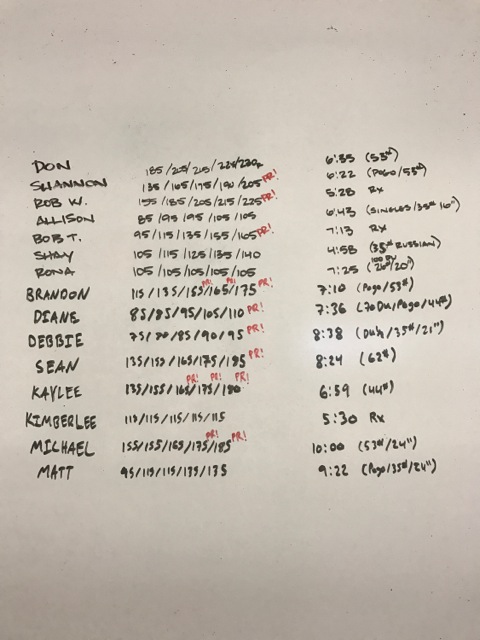 DON 185/205/215/225/230 6:35 (53#)
SHANNON 135/165/175/190/205 PR! 6:22 (POGO/53#)
ROB W. 155/185/205/215/225 PR! 5:28 RX
ALLISON 85/95/95/105/105 6:43 (SINGLES/35# 16")
BOB T. 95/115/135/155/165 PR! 7:13 RX
SHAY 105/115/125/135/140 4:58 (35# RUSSIAN)
RONA 105/105/105/105/105 7:25 (26#/20")
BRANDON 115/135/155 PR!/165 PR!/175 PR! 7:10 (Pogo/53#)
DIANE 85/85/95/105/110 PR! 7:36 (70 DU/Pogo/44#)
DEBBIE 75/80/85/90/95 PR! 8:38 (/35#/21")
SEAN 135/155/165/175/185 PR! 8:24 (62#)
KAYLEE 135/155/165 PR!/175 PR!/180 PR! 6:59 (44#)
KIMBERLEE 115/115/115/115/115 5:30 Rx
MICHAEL 155/155/165/175 PR!/185 PR! 10:00 (53#/24")
MATT 95/115/115/135/135 9:22 (Pogo/35#/24")